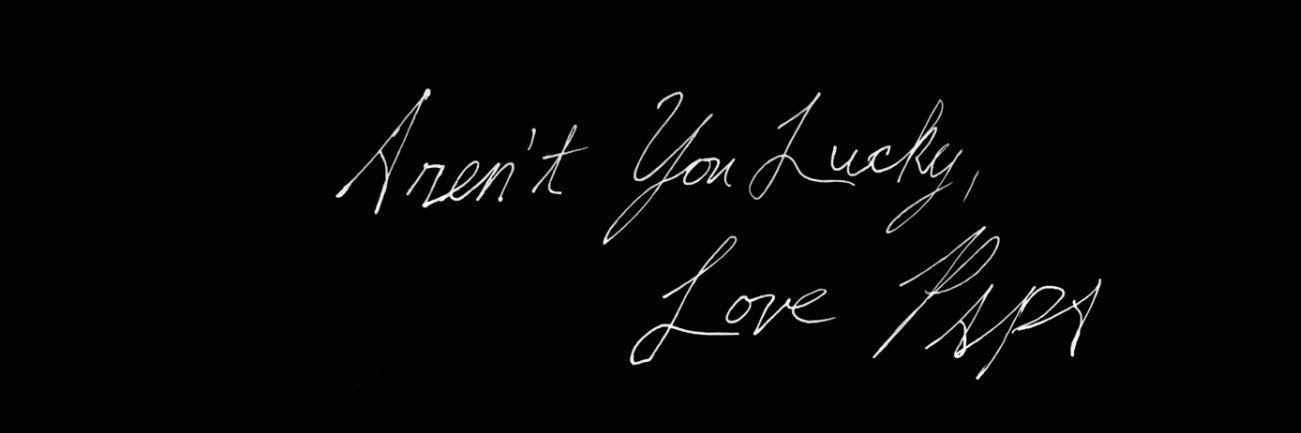 Aren't You Lucky,
Love Papa